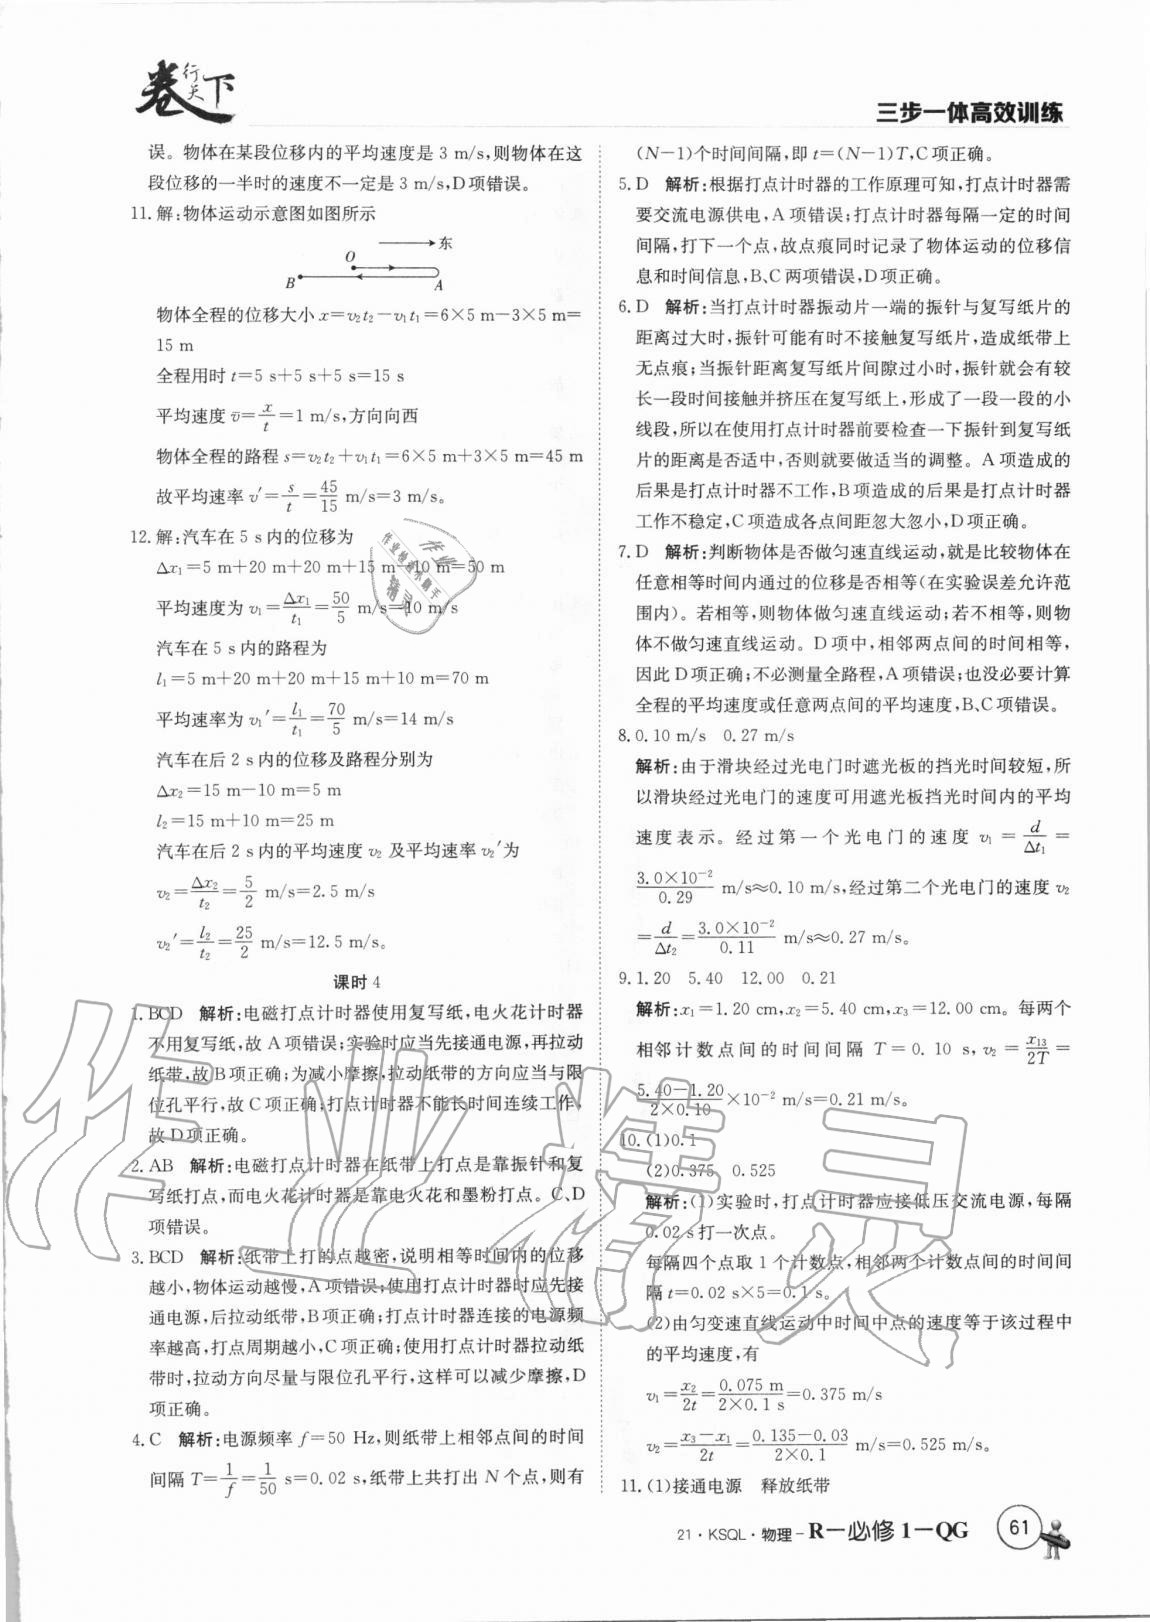 卷行天下
三步一体高效训练
误。物体在某段位移内的平均速度是 3 m/s,则物体在这
段位移的一半时的速度不一定是 3 m/s,D项错误。
11.解:物体运动示意图如图所示
东
O
B
A
物体全程的位移大小 x=v₂t₂-v₁t₁=6×5 m-3×5 m=
15 m
全程用时 t=5 s+5 s+5 s=15 s
平均速度 v̄=x/t=1 m/s,方向向西
物体全程的路程 s=v₂t₂+v₁t₁=6×5 m+3×5 m=45 m
故平均速率 v′=s/t=45/15 m/s=3 m/s。
12.解:汽车在 5 s内的位移为
Δx₁=5 m+20 m+20 m+15 m-10 m=50 m
平均速度为 v₁=Δx₁/t₁=50/5 m/s=10 m/s
汽车在 5 s内的路程为
l₁=5 m+20 m+20 m+15 m+10 m=70 m
平均速率为 v₁′=l₁/t₁=70/5 m/s=14 m/s
汽车在后 2 s内的位移及路程分别为
Δx₂=15 m-10 m=5 m
l₂=15 m+10 m=25 m
汽车在后 2 s内的平均速度 v₂ 及平均速率 v₂′为
v₂=Δx₂/t₂=5/2 m/s=2.5 m/s
v₂′=l₂/t₂=25/2 m/s=12.5 m/s。
课时 4
1.BCD 解析:电磁打点计时器使用复写纸,电火花计时器
不用复写纸,故 A项错误;实验时应当先接通电源,再拉动
纸带,故 B项正确;为减小摩擦,拉动纸带的方向应当与限
位孔平行,故 C项正确;打点计时器不能长时间连续工作,
故 D项正确。
2.AB 解析:电磁打点计时器在纸带上打点是靠振针和复
写纸打点,而电火花计时器是靠电火花和墨粉打点。C、D
项错误。
3.BCD 解析:纸带上打的点越密,说明相等时间内的位移
越小,物体运动越慢,A项错误;使用打点计时器时应先接
通电源,后拉动纸带,B项正确;打点计时器连接的电源频
率越高,打点周期越小,C项正确;使用打点计时器拉动纸
带时,拉动方向尽量与限位孔平行,这样可以减少摩擦,D
项正确。
4.C 解析:电源频率 f=50 Hz,则纸带上相邻点间的时间
间隔 T=1/f=1/50 s=0.02 s,纸带上共打出 N 个点,则有
(N-1)个时间间隔,即 t=(N-1)T,C项正确。
5.D 解析:根据打点计时器的工作原理可知,打点计时器需
要交流电源供电,A项错误;打点计时器每隔一定的时间
间隔,打下一个点,故点痕同时记录了物体运动的位移信
息和时间信息,B、C两项错误,D项正确。
6.D 解析:当打点计时器振动片一端的振针与复写纸片的
距离过大时,振针可能有时不接触复写纸片,造成纸带上
无点痕;当振针距离复写纸片间隙过小时,振针就会有较
长一段时间接触并挤压在复写纸上,形成了一段一段的小
线段,所以在使用打点计时器前要检查一下振针到复写纸
片的距离是否适中,否则就要做适当的调整。A项造成的
后果是打点计时器不工作,B项造成的后果是打点计时器
工作不稳定,C项造成各点间距忽大忽小,D项正确。
7.D 解析:判断物体是否做匀速直线运动,就是比较物体在
任意相等时间内通过的位移是否相等(在实验误差允许范
围内)。若相等,则物体做匀速直线运动;若不相等,则物
体不做匀速直线运动。D项中,相邻两点间的时间相等,
因此 D项正确;不必测量全路程,A项错误;也没必要计算
全程的平均速度或任意两点间的平均速度,B、C项错误。
8.0.10 m/s 0.27 m/s
解析:由于滑块经过光电门时遮光板的挡光时间较短,所
以滑块经过光电门的速度可用遮光板挡光时间内的平均
速度表示。经过第一个光电门的速度 v₁ = d/Δt₁ =
3.0×10⁻²/0.29 m/s≈0.10 m/s,经过第二个光电门的速度 v₂
=d/Δt₂=3.0×10⁻²/0.11 m/s≈0.27 m/s。
9.1.20 5.40 12.00 0.21
解析:x₁=1.20 cm,x₂=5.40 cm,x₃=12.00 cm。每两个
相邻计数点间的时间间隔 T=0.10 s,v₂=x₁₃/2T=
5.40-1.20/2×0.10×10⁻² m/s=0.21 m/s。
10.(1)0.1
(2)0.375 0.525
解析:(1)实验时,打点计时器应接低压交流电源,每隔
0.02 s打一次点。
每隔四个点取 1 个计数点,相邻两个计数点间的时间间
隔 t=0.02 s×5=0.1 s。
(2)由匀变速直线运动中时间中点的速度等于该过程中
的平均速度,有
v₁=x₂/2t=0.075 m/2×0.1 s=0.375 m/s
v₂=x₃-x₁/2t=0.135-0.03/2×0.1 m/s=0.525 m/s。
11.(1)接通电源 释放纸带
21·KSQL·物理-R-必修1-QG
61
作业精灵
作业检查小帮手
作业精灵